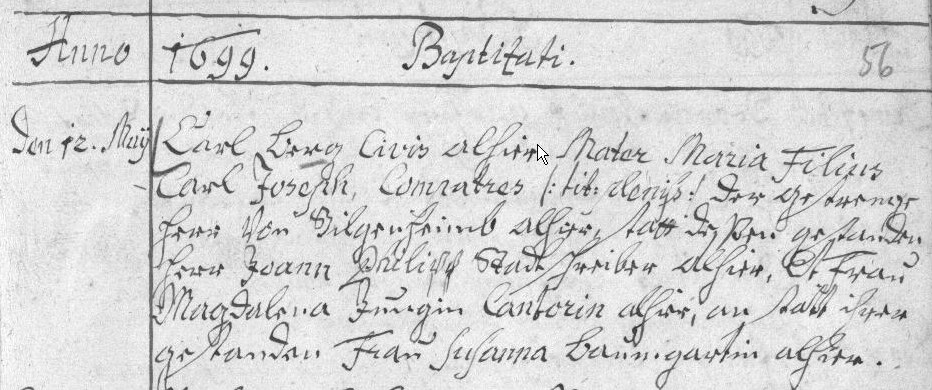 Anno 1699. Baptizati. 56
Den 12. May Carl Berg Civis alhier, Mater Maria Filius
Carl Joseph, Compatres /: tit: plenis :/ Der gestrenge
Herr Von Bilgenheimb alhier, statt dessen gestanden
Herr Joann Philipp Stadtschreiber alhier, Et Frau
Magdalena Jungin Cantorin alhier, an statt ihrer
gestanden Frau Susanna Baumgartin alhier.